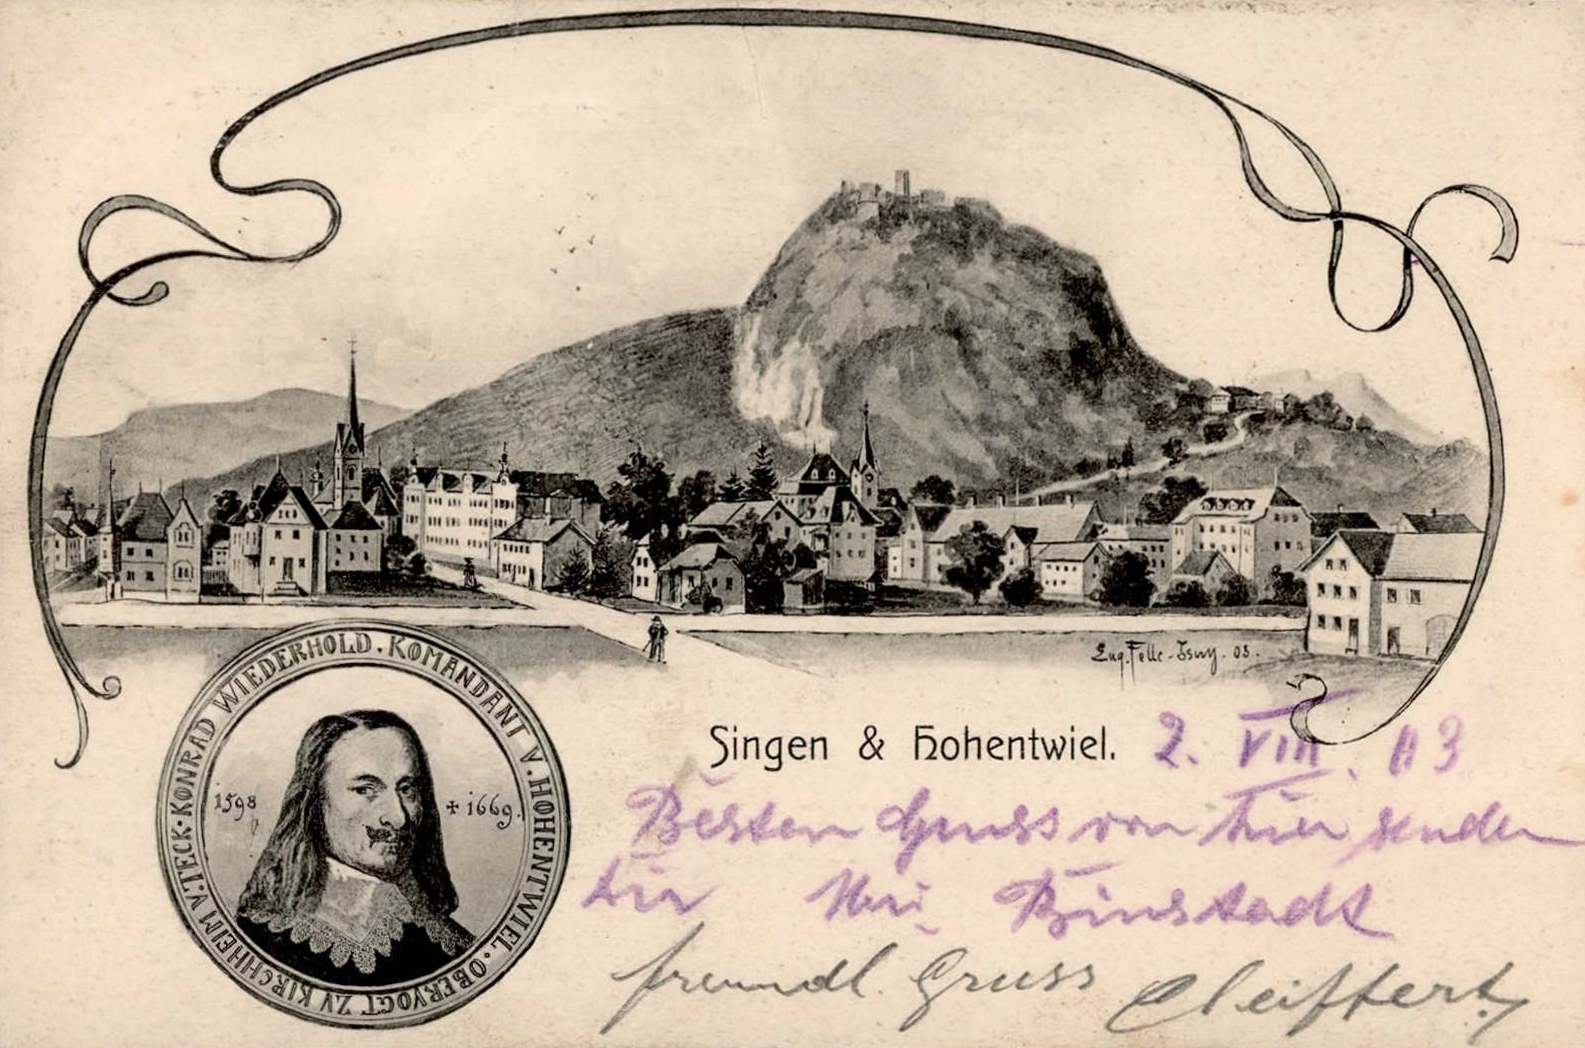 Eug. Felle - Isny. 03.
KONRAD WIEDERHOLD. KOMANDANT V. HOHENTWIEL. OBERVOGT ZV KIRCHHEIM V. TECK.
1598 + 1669.
Singen & Hohentwiel. 2. VIII. 03
Besten Gruss von hier senden
dir
freundl. Gruss